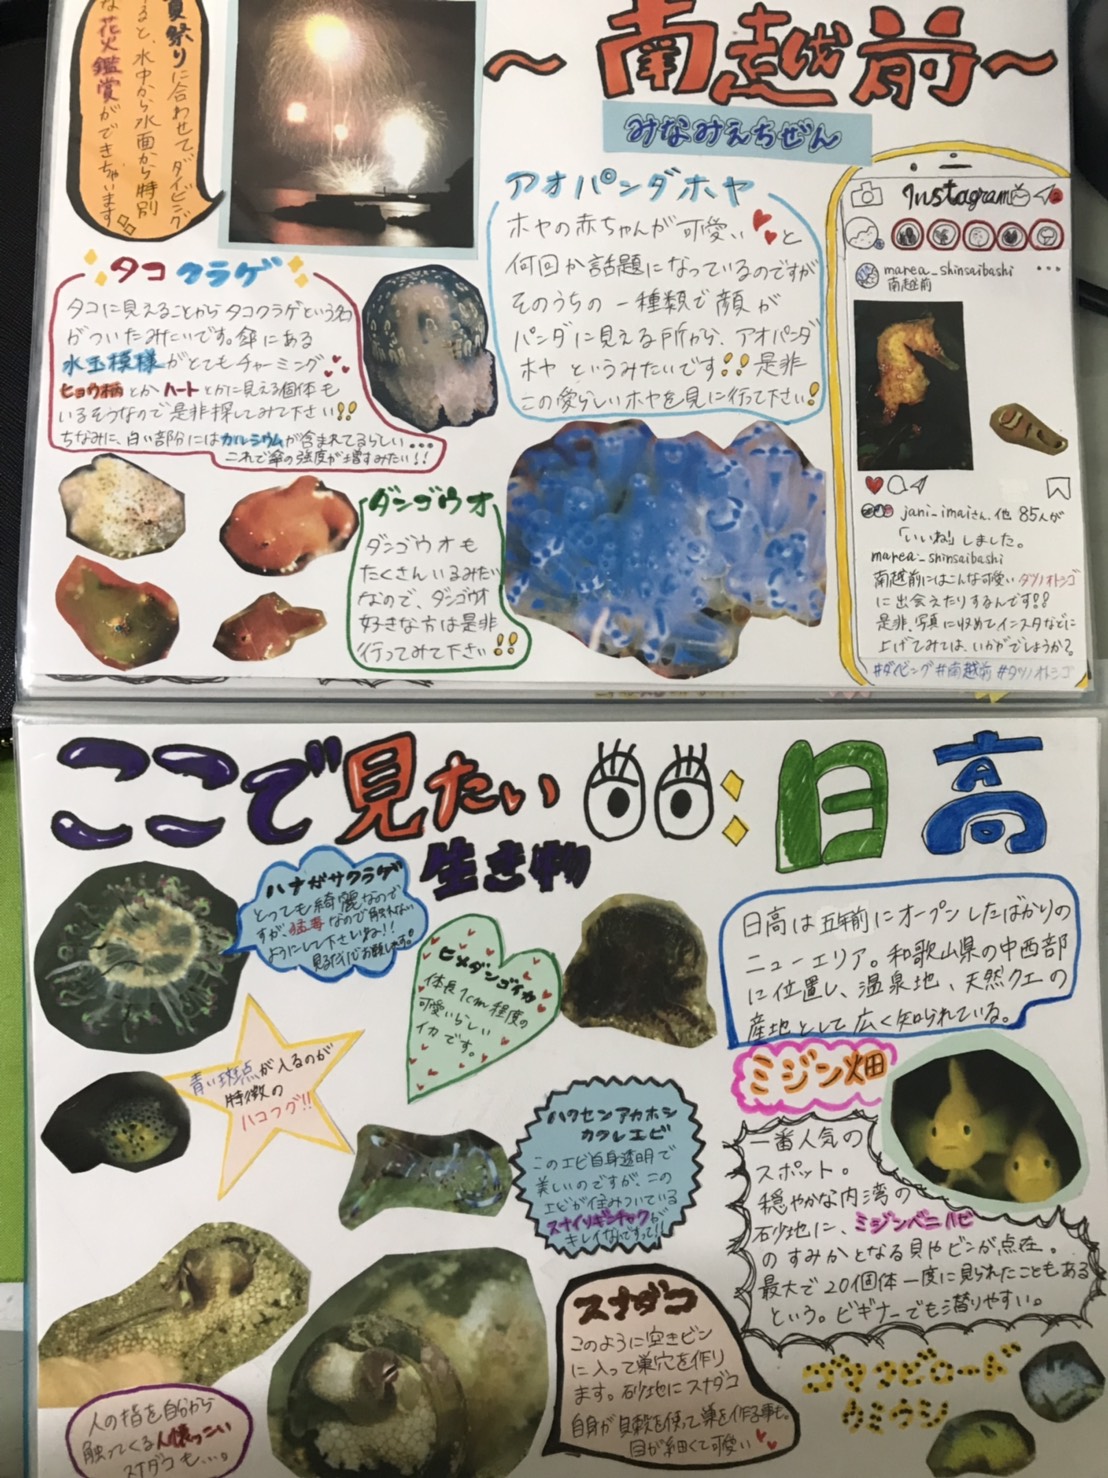 ～南越前～
みなみえちぜん
夏祭りに合わせてダイビング
すると、水中から水面から特別
な花火鑑賞ができちゃいます
タコクラゲ
タコに見えることからタコクラゲという名
がついたみたいです。傘にある
水玉模様がとてもチャーミング
ヒョウ柄とかハートとかに見える個体も
いるそうなので是非探してみて下さい!!
ちなみに、白い部分にはカルシウムが含まれてるらしい...
これで傘の強度が増すみたい!!
ダンゴウオ
ダンゴウオも
たくさんいるみたい
なので、ダンゴウオ
好きな方は是非
行ってみて下さい!!
アオパンダホヤ
ホヤの赤ちゃんが可愛いと
何回か話題になっているのですが
そのうちの一種類で顔が
パンダに見える所から、アオパンダ
ホヤというみたいです!!是非
この愛らしいホヤを見に行って下さい!
Instagram
marea_shinsaibashi
南越前
jani_imaiさん、他85人が
「いいね」しました。
marea_shinsaibashi
南越前にはこんな可愛いタツノオトシゴ
に出会えたりするんです!!
是非、写真に収めてインスタなどに
上げてみては、いかがでしょうか?
#ダイビング#南越前#タツノオトシゴ
ここで見たい
生き物
:日高
ハナガサクラゲ
とっても綺麗なので
すが、猛毒なので触れない
ようにして下さいね!!
見るだけでお願いします。
ヒメダンゴイカ
体長1cm程度の
可愛いらしい
イカです。
日高は五年前にオープンしたばかりの
ニューエリア。和歌山県の中西部
に位置し、温泉地、天然クエの
産地として広く知られている。
青い斑点が入るのが
特徴の
ハコフグ!!
ハクセンアカホシ
カクレエビ
このエビ自身透明で
美しいのですが、この
エビが住みついている
スナイソギンチャクが
キレイなんですって!!
ミジン畑
一番人気の
スポット。
穏やかな内湾の
砂地に、ミジンベニハゼ
のすみかとなる貝やビンが点在。
最大で20個体一度に見られたこともある
という。ビギナーでも潜りやすい。
スナダコ
このように空きビン
に入って巣穴を作り
ます。砂地にスナダコ
自身が貝殻を使って巣を作る事も。
目が細くて可愛い
人の指を自分から
触ってくる人懐っこい
スナダコも...。
ゴマフビロード
ウミウシ